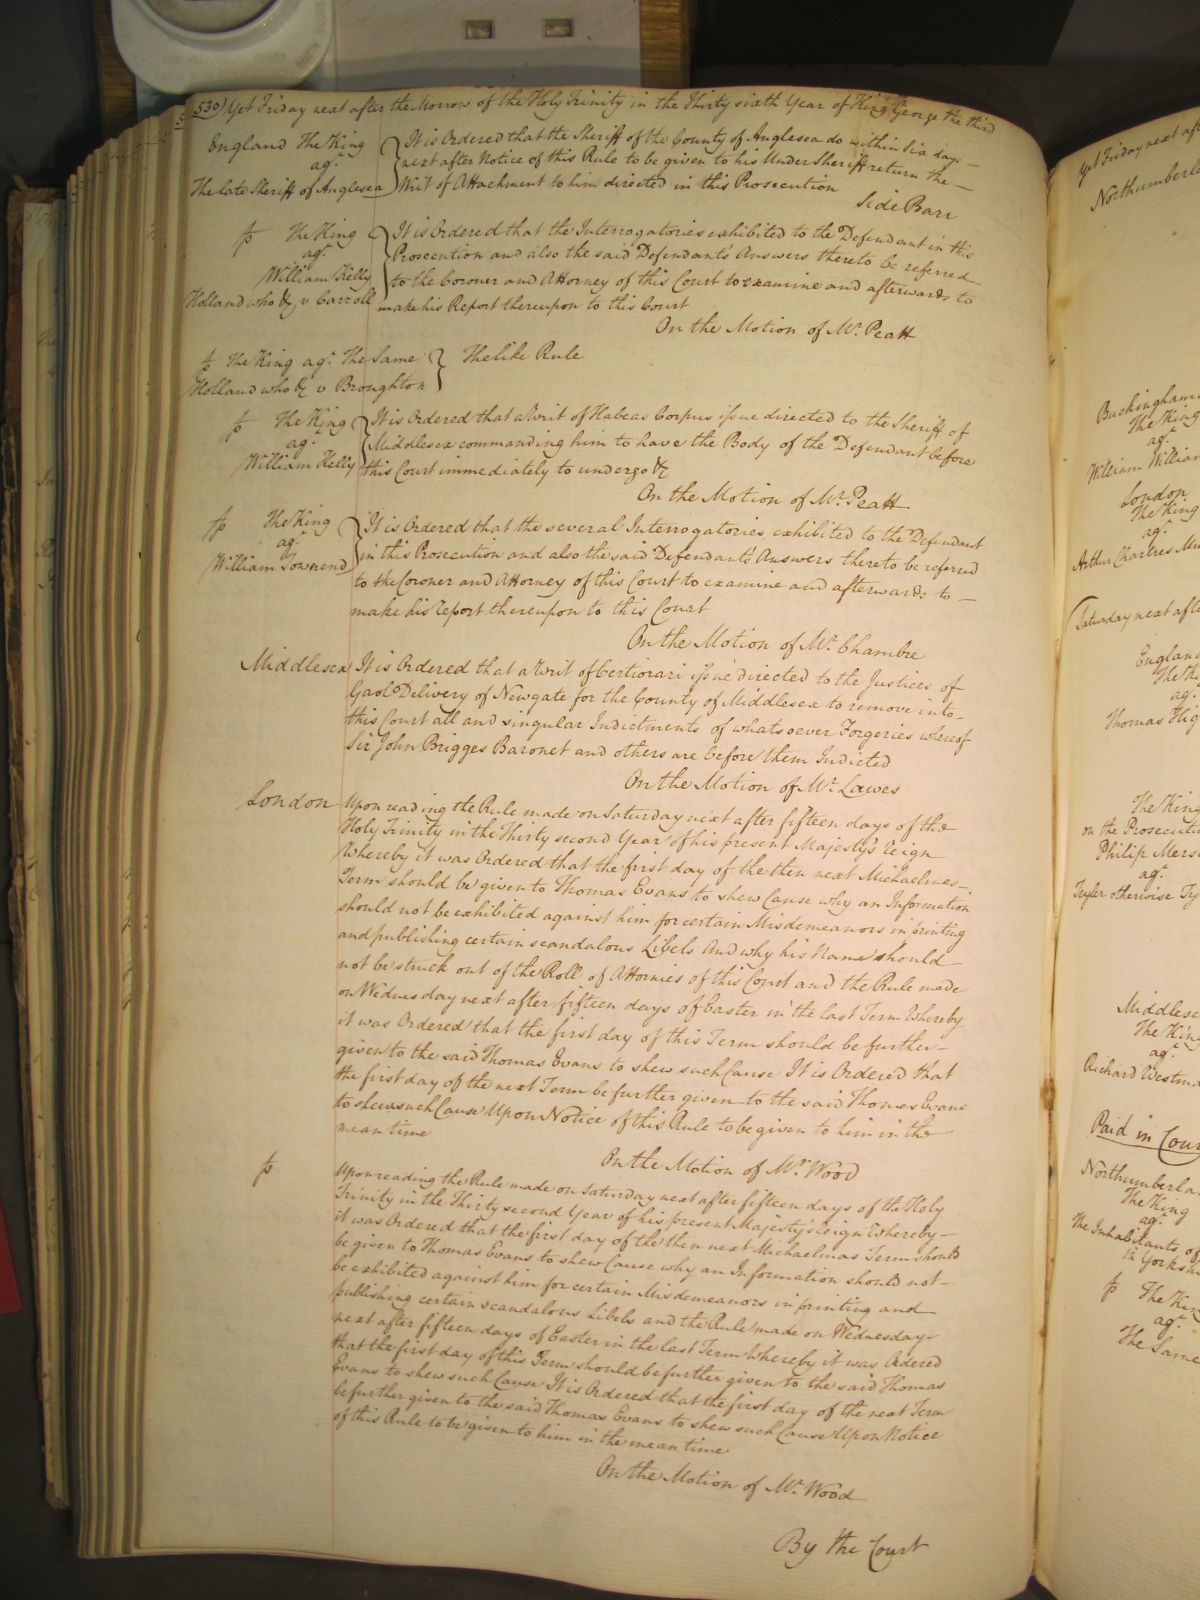 530) Yet Friday next after the Morrow of the Holy Trinity in the Thirty sixth Year of King George the third
England The King
agt.
The late Sheriff of Anglesea
It is Ordered that the Sheriff of the County of Anglesea do within six days
next after Notice of this Rule to be given to his Under Sheriff return the
Writ of Attachment to him directed in this Prosecution
Side Barr
The King
agt.
William Kelly
Holland who &c v Carroll
It is Ordered that the Interrogatories exhibited to the Defendant in this
Prosecution and also the said Defendant's Answers thereto be referred
to the Coroner and Attorney of this Court to examine and afterwards to
make his Report thereupon to this Court
On the Motion of Mr. Peatt
The King agt. The Same
Holland who &c v Broughton
The like Rule
The King
agt.
William Kelly
It is Ordered that a Writ of Habeas Corpus issue directed to the Sheriff of
Middlesex commanding him to have the Body of the Defendant before
this Court immediately to undergo &c
On the Motion of Mr. Peatt
The King
agt.
William Townend
It is Ordered that the several Interrogatories exhibited to the Defendant
in this Prosecution and also the said Defendant's Answers thereto be referred
to the Coroner and Attorney of this Court to examine and afterwards to
make his Report thereupon to this Court
On the Motion of Mr. Chambre
Middlesex It is Ordered that a Writ of Certiorari issue directed to the Justices of
Gaol Delivery of Newgate for the County of Middlesex to remove into
this Court all and singular Indictments of whatsoever Forgeries whereof
Sir John Brigges Baronet and others are before them Indicted
On the Motion of Mr. Lawes
London Upon reading the Rule made on Saturday next after fifteen days of the
Holy Trinity in the Thirty second Year of his present Majesty's Reign
Whereby it was Ordered that the first day of the then next Michaelmas
Term should be given to Thomas Evans to shew Cause why an Information
should not be exhibited against him for certain Misdemeanors in printing
and publishing certain scandalous Libels And why his Name should
not be struck out of the Roll of Attornies of this Court and the Rule made
on Wednesday next after fifteen days of Easter in the last Term Whereby
it was Ordered that the first day of this Term should be further
given to the said Thomas Evans to shew such Cause It is Ordered that
the first day of the next Term be further given to the said Thomas Evans
to shew such Cause Upon Notice of this Rule to be given to him in the
mean time
On the Motion of Mr. Wood
Upon reading the Rule made on Saturday next after fifteen days of the Holy
Trinity in the Thirty second Year of his present Majesty's Reign Whereby
it was Ordered that the first day of the then next Michaelmas Term should
be given to Thomas Evans to shew Cause why an Information should not
be exhibited against him for certain Misdemeanors in printing and
publishing certain scandalous Libels and the Rule made on Wednesday
next after fifteen days of Easter in the last Term Whereby it was Ordered
that the first day of this Term should be further given to the said Thomas
Evans to shew such Cause It is Ordered that the first day of the next Term
be further given to the said Thomas Evans to shew such Cause Upon Notice
of this Rule to be given to him in the mean time
On the Motion of Mr. Wood
By the Court
Yet Friday next
The King
agt.
William
London
The King
agt.
Arthur Charteris
Saturday next
England
agt.
Thomas
The King
on the
Philip
agt.
otherwise
The King
agt.
Richard
Paid in
The King
agt.
The Inhabitants of
in
agt.
The Same